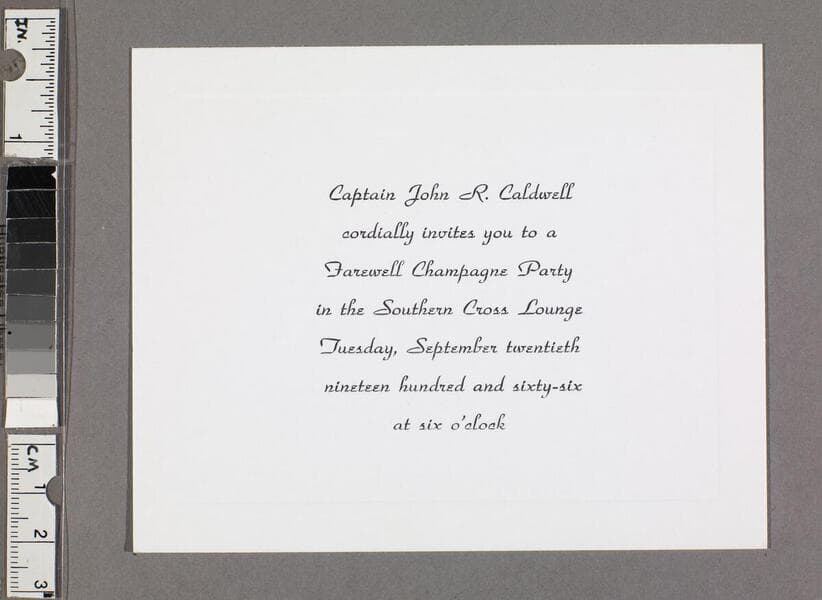 Captain John R. Caldwell
cordially invites you to a
Farewell Champagne Party
in the Southern Cross Lounge
Tuesday, September twentieth
nineteen hundred and sixty-six
at six o'clock
IN.
1
CM
1
2
3